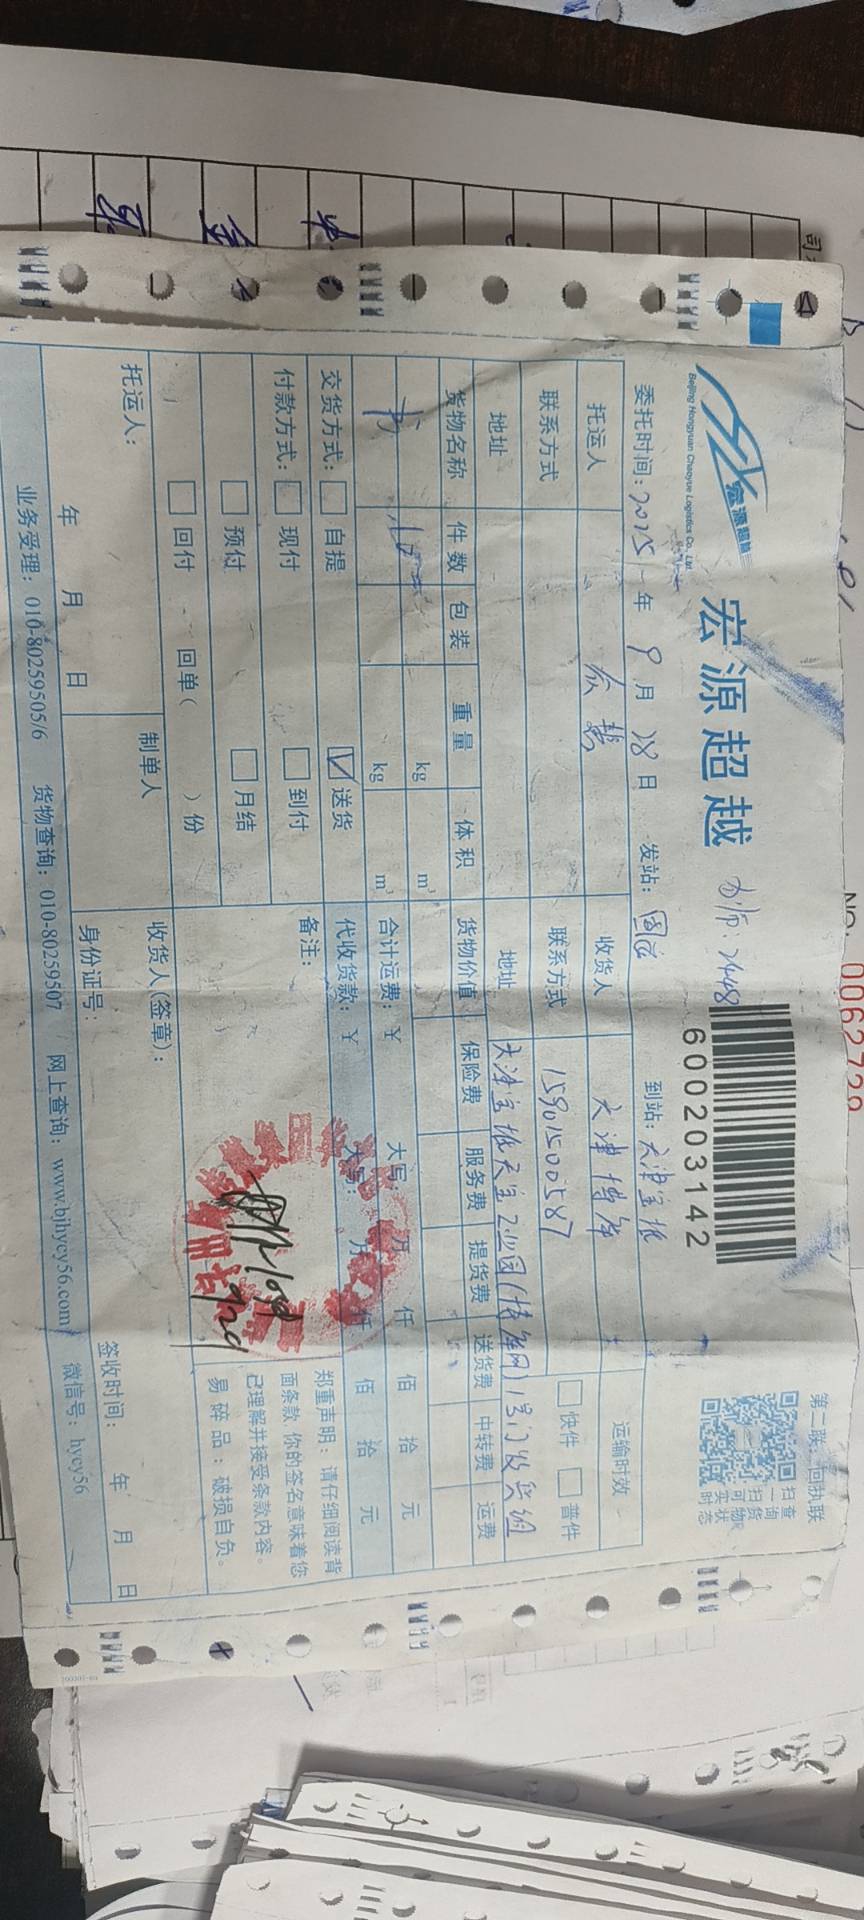 宏源超越
Beijing Hongyuan Chaoyue Logistics Co., Ltd.
宏源超越
600203142
第二联：回执联
扫查
一询
扫货
可物
实状
时态
委托时间：2025年9月28日 发站： 到站：天津宝坻
托运人 收货人 天津博年 运输时效
联系方式 联系方式 15901500587 快件 普件
地址 地址 天津宝坻天宝工业园(博年网)1号门
货物名称 件数 包装 重量 体积 货物价值 保险费 服务费 提货费 送货费 中转费 运费
书 kg m³
kg m³ 合计运费：￥ 大写： 万 仟 佰 拾 元
交货方式： 自提 送货 代收货款：￥ 大写： 万 仟 佰 拾 元
付款方式： 现付 到付 备注：
预付 月结
回付 回单( )份
郑重声明：请仔细阅读背
面条款，你的签名意味着您
已理解并接受条款内容。
易碎品：破损自负。
托运人： 制单人 收货人(签章)：
年 月 日 身份证号： 签收时间： 年 月 日
业务受理：010-80259505/6 货物查询：010-80259507 网上查询：www.bjhycy56.com 微信号：hycy56